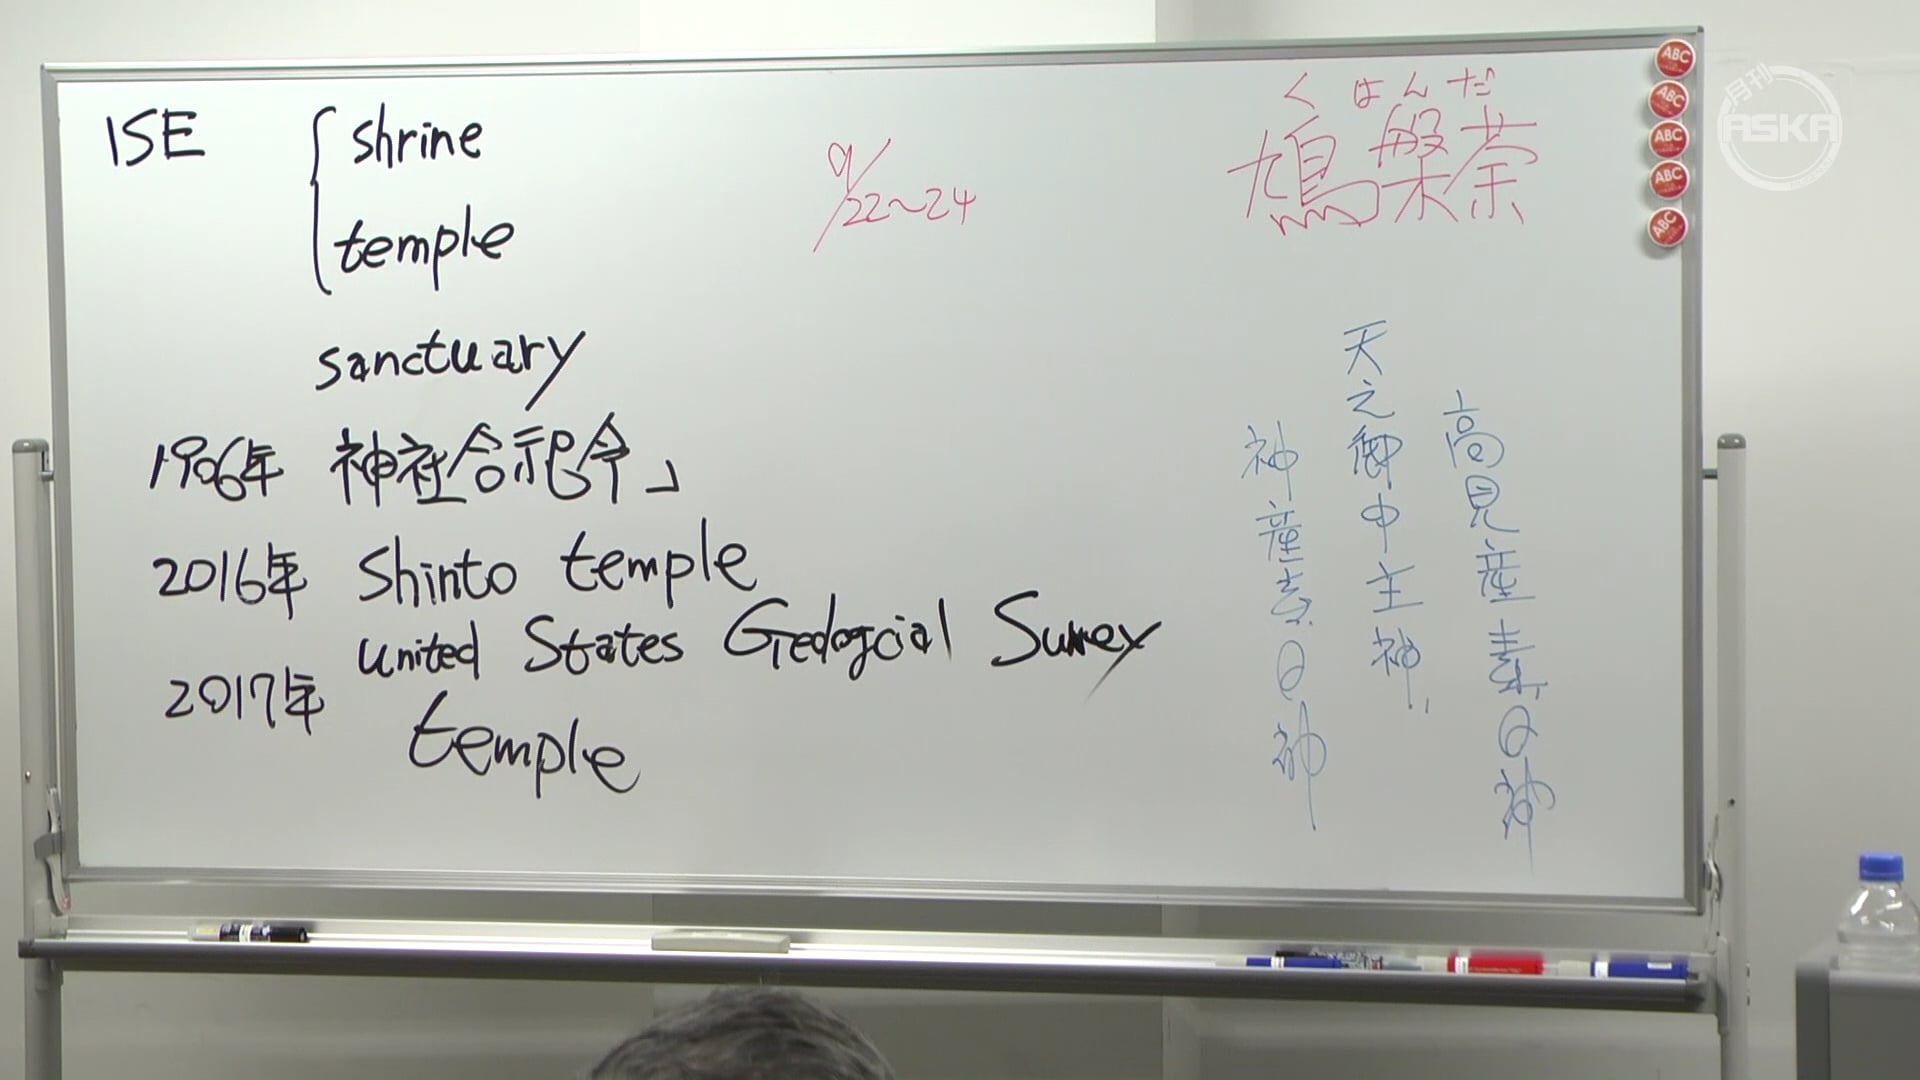 ISE
shrine
temple
sanctuary
1906年 神社合祀令」
2016年 Shinto temple
United States Geologcial Survey
2017年
temple
9/22~24
くはんだ
鳩槃荼
高見産素日神
天之御中主神
神産素日神
ABC
ABC
ABC
ABC
ABC
月刊
ASKA